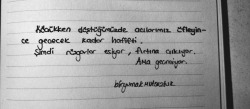 Küçükken düştüğümüzde acılarımız üfleyin-
ce geçecek kadar hafifti.
Şimdi rüzgarlar esiyor, fırtına çıkıyor.
Ama geçmiyor.